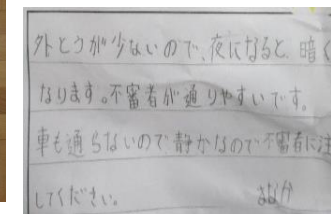 外とうが少ないので、夜になると、暗く
なります。不審者が通りやすいです。
車も通らないので静かなので不審者に注
してください。